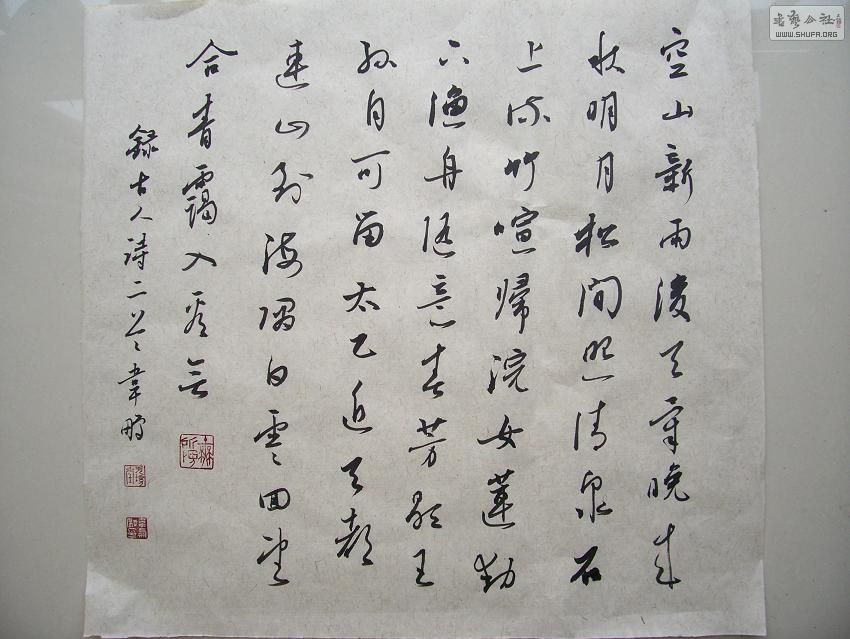 空山新雨後天氣晚来
秋明月松间照清泉石
上流竹喧歸浣女蓮動
下漁舟随意春芳歇王
孙自可留太乙近天都
連山到海隅白雲回望
合青靄入看無
録古人詩二首韋鵬
書藝公社
WWW.SHUFA.ORG